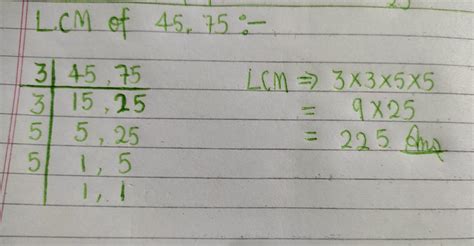 LCM of 45, 75 :-
3 | 45, 75
3 | 15, 25
5 | 5, 25
5 | 1, 5
1, 1
LCM ⇒ 3×3×5×5
= 9×25
= 225 Ans